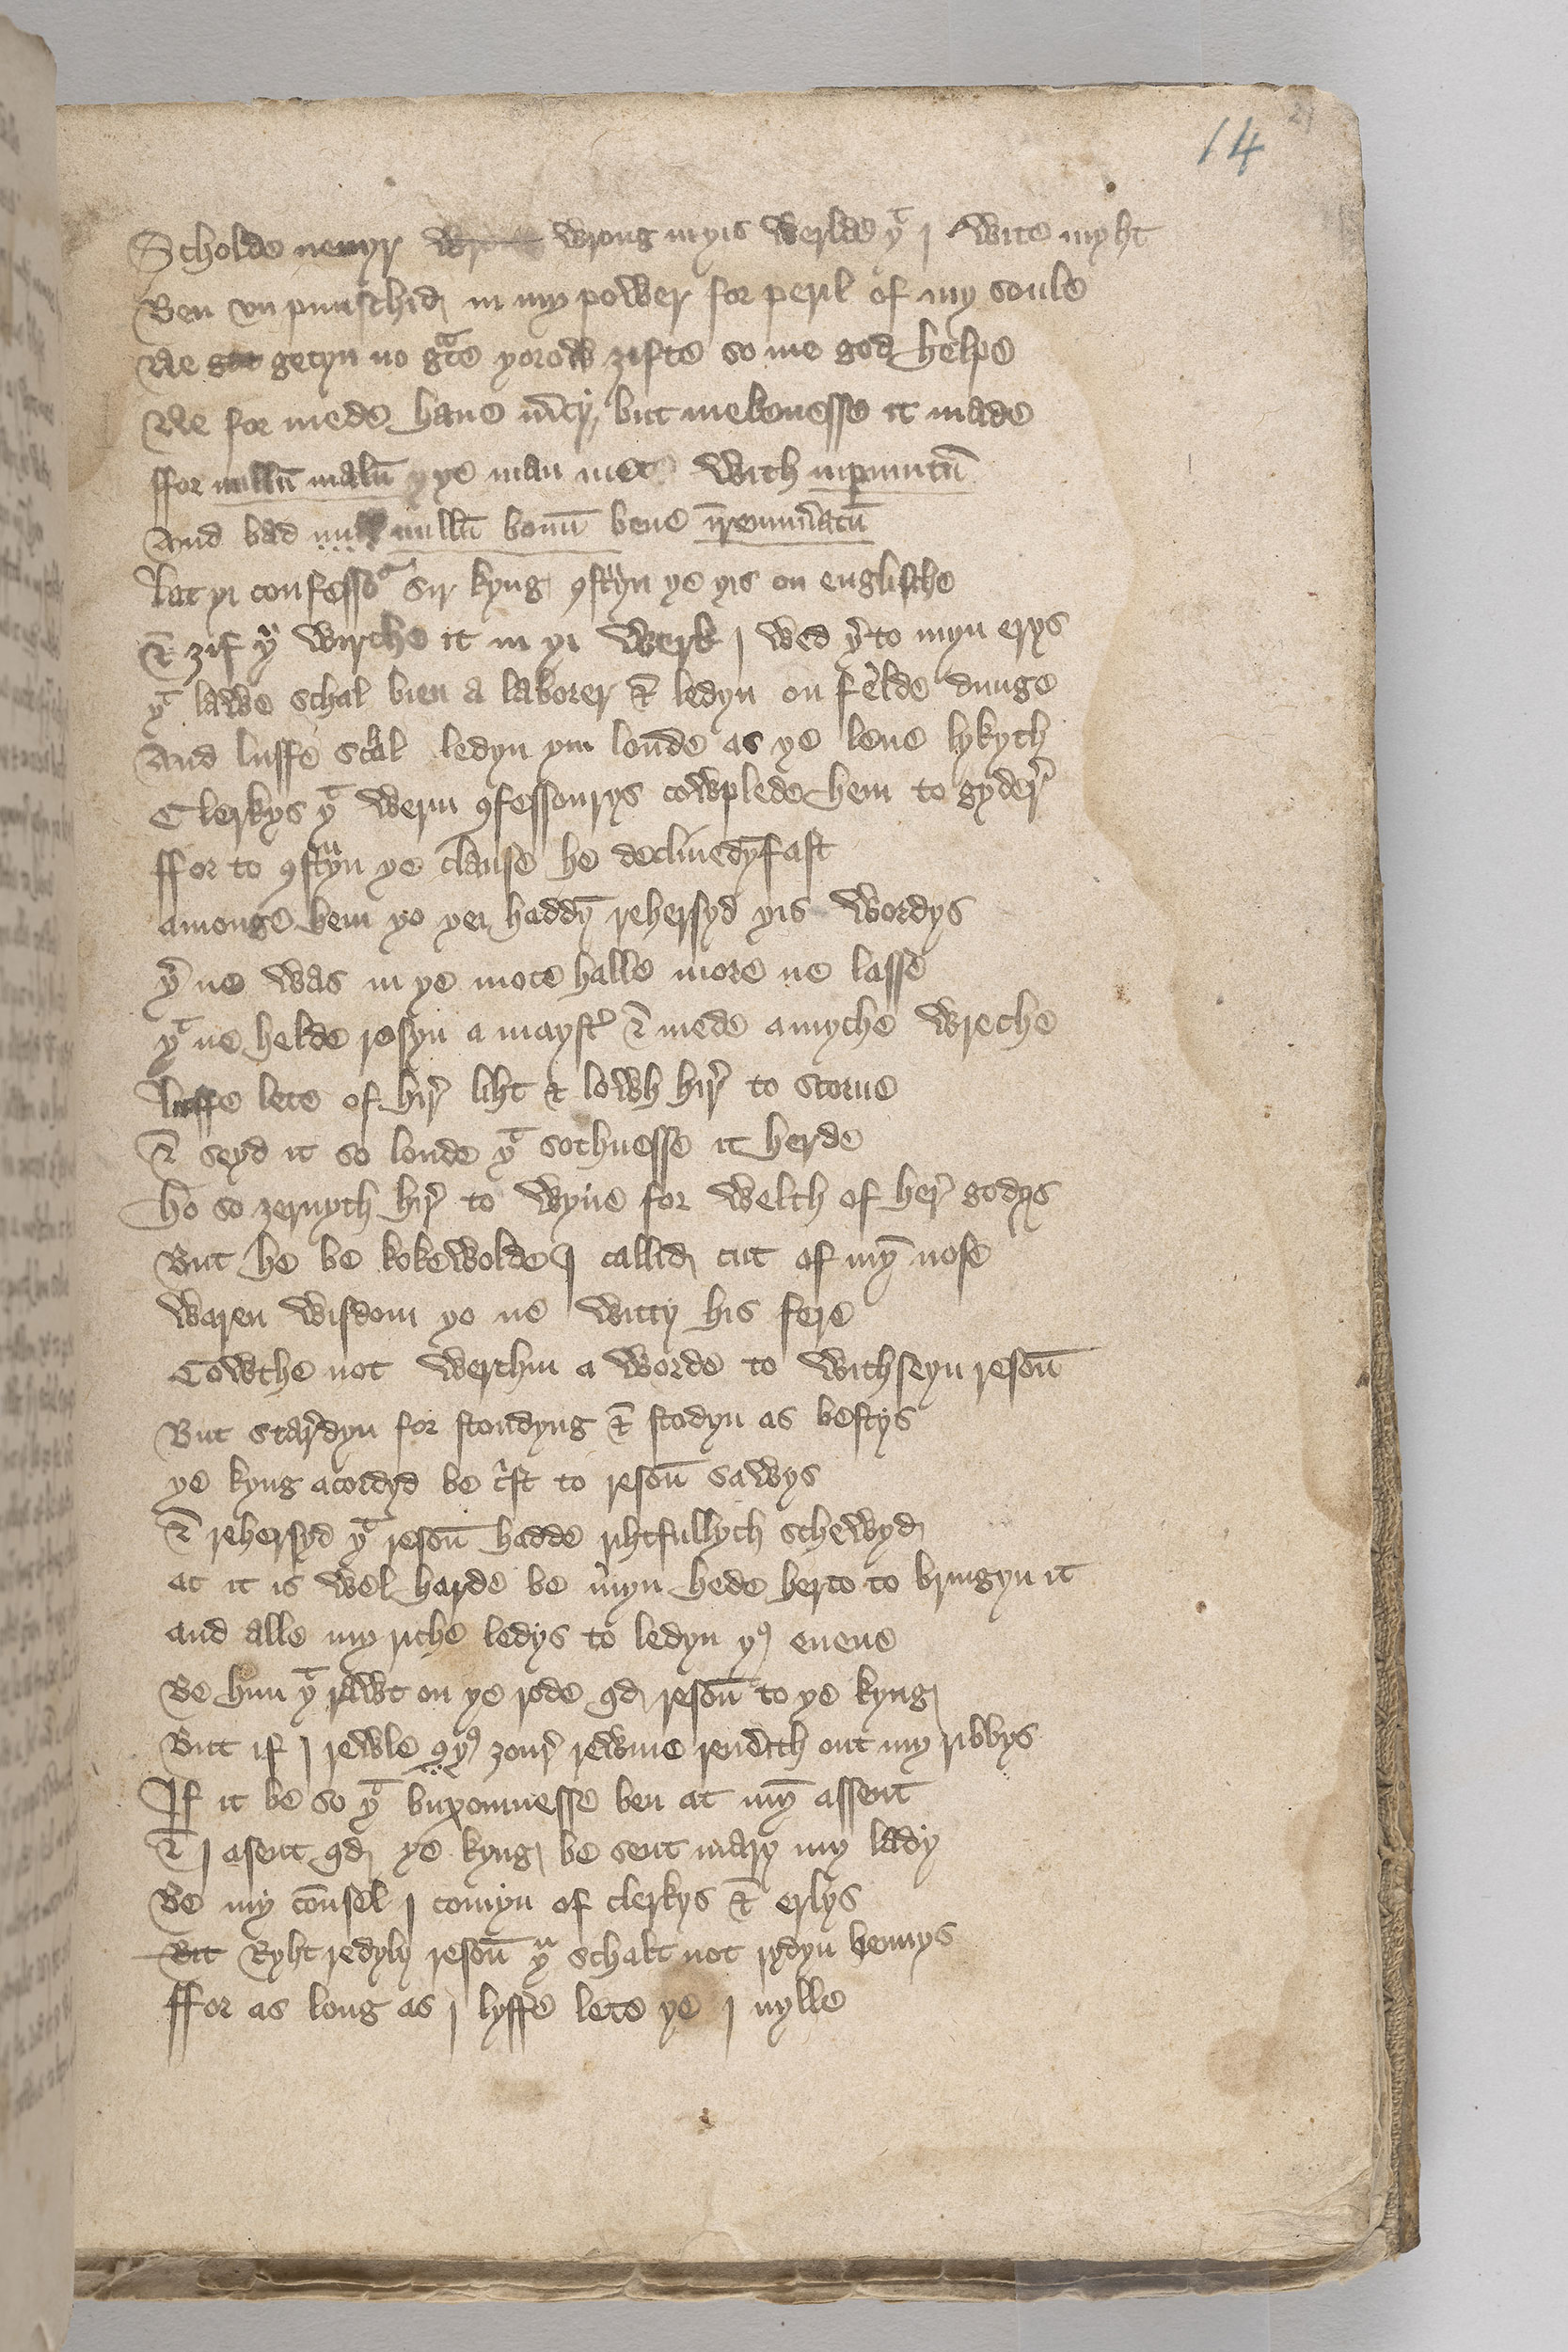 14
Scholde neuyr wrong in yis werlde yͭ j wite myht
Ben vn punischid in my power for peril of my soule
Ne getyn no gͣce yorow ȝifte so me god helpe
Ne for mede haue m̅cy but mekenesse it made
ffor nullū malū ye man mete with inpunitū
And bad nullū bonū bene irremun̅atū
Lat yi confessoͬ sir kyng ꝯstͬyn ye yis on englische
& ȝif yͧ wirche it in yi werk j wed yͬto myn erys
yͭ lawe schal bien a laborer & ledyn on felde dunge
And luffe scal ledyn yin londe as ye leue lykyth
Clerkys yͭ werin ꝯfessourys cowplede hem to gyder̛
ffor to ꝯstͬyn ye clause he declinedyn̄ fast
amonge hem yo yei haddyn̄ rehersyd yis wordys
yͬ ne was in ye mote halle more ne lasse
yͭ ne helde resyn a mayst̛ & mede a myche wreche
luffe lete of hir̛ liht & lowh hir̛ to scorne
& seyd it so loude yͭ sothnesse it herde
Ho so ȝernyth hir̛ to wyue for welth of her̛ godys
But he be kokewolde j callid cut of myn̄ nose
Waren wisdom yo ne witty his fere
Cowthe not werthin a worde to withseyn resoū
But star̛dyn for stondyng & stodyn as bestys
ye kyng acordyd be c̛st to resoū sawys
& rehersyd yͭ resoū hadde rihtfullych schewyd
at it is wel harde be myn hede herto to bringyn it
and alle my riche ledys to ledyn yꝰ euene
Be him yͭ rawt on ye rode qd resoū to ye kyng
But if j rewle yꝰ ȝour̛ rewme rendith out my ribbys
If it be so yͭ buxomnesse ben at myn̄ assent
& j asent qd ye kyng be sent mary my lady
Be my coūsel j comyn of clerkys & erlys
But Ryht redyly resoū yͧ schalt not rydyn hennys
ffor as long as j lyffe lete ye j nylle